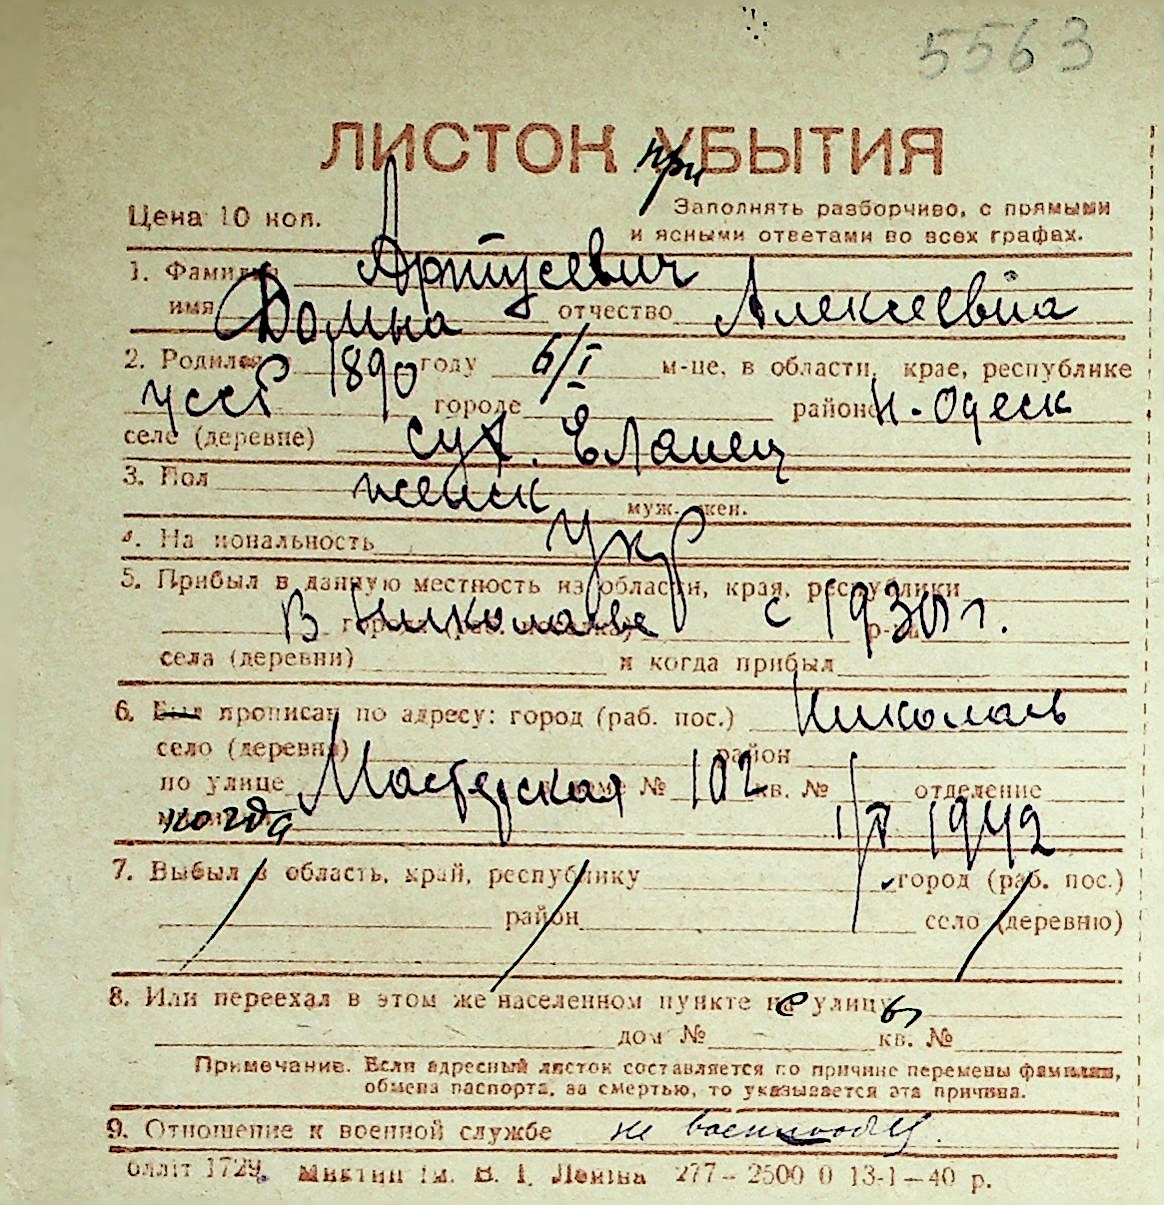 5563
ЛИСТОК УБЫТИЯ
при
Цена 10 коп.
Заполнять разборчиво, с прямыми
и ясными ответами во всех графах.
1. Фамилия Артусевич
имя Домна отчество Алексеевна
2. Родился в 1890 году 6/I м-це, в области, крае, республике
УССР городе районе Н-Одеск
селе (деревне) сух. Еланец
3. Пол женск муж. жен.
4. Национальность Укр
5. Прибыл в данную местность из области, края, республики
В Николаеве с 1930 г.
села (деревни) и когда прибыл
6. Был прописан по адресу: город (раб. пос.) Николаев
село (деревня) район
по улице Мастерская доме № 102 кв. № отделение
когда 1/V 1942
7. Выбыл в область, край, республику город (раб. пос.)
район село (деревню)
8. Или переехал в этом же населенном пункте на улицу
с ы
дом № кв. №
Примечание. Если адресный листок составляется по причине перемены фамилии,
обмена паспорта, за смертью, то указывается эта причина.
9. Отношение к военной службе не военнообяз.
облліт 1729. Миктип ім. В. І. Леніна 277-2500 0 13-1-40 р.